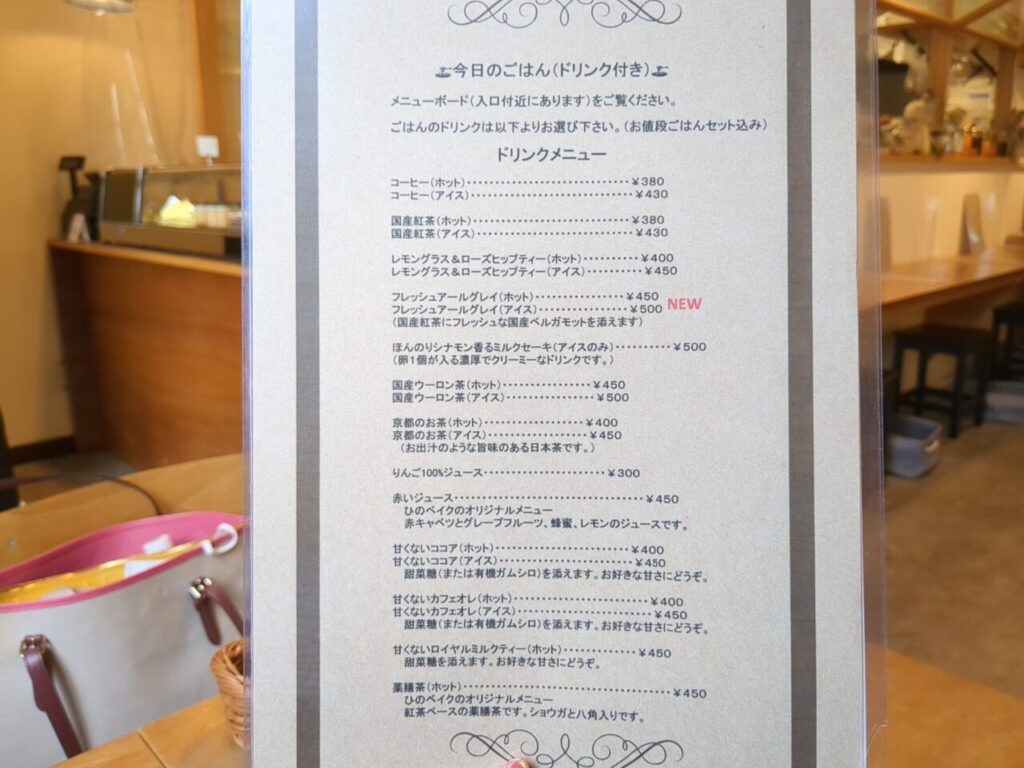 今日のごはん(ドリンク付き)
メニューボード(入口付近にあります)をご覧ください。
ごはんのドリンクは以下よりお選び下さい。(お値段ごはんセット込み)
ドリンクメニュー
コーヒー(ホット)・・・・・・・・・・・・・・・・・・・・・・・・・・・・・¥380
コーヒー(アイス)・・・・・・・・・・・・・・・・・・・・・・・・・・・・・¥430
国産紅茶(ホット)・・・・・・・・・・・・・・・・・・・・・・・・・・・・¥380
国産紅茶(アイス)・・・・・・・・・・・・・・・・・・・・・・・・・・・・¥430
レモングラス&ローズヒップティー(ホット)・・・・・・・・・・¥400
レモングラス&ローズヒップティー(アイス)・・・・・・・・・・¥450
フレッシュアールグレイ(ホット)・・・・・・・・・・・・・・・・¥450
フレッシュアールグレイ(アイス)・・・・・・・・・・・・・・・・¥500 NEW
(国産紅茶にフレッシュな国産ベルガモットを添えます)
ほんのりシナモン香るミルクセーキ(アイスのみ)・・・・・・・・・・¥500
(卵1個が入る濃厚でクリーミーなドリンクです。)
国産ウーロン茶(ホット)・・・・・・・・・・・・・・・・¥450
国産ウーロン茶(アイス)・・・・・・・・・・・・・・・・¥500
京都のお茶(ホット)・・・・・・・・・・・・・・・・・・¥400
京都のお茶(アイス)・・・・・・・・・・・・・・・・・・¥450
(お出汁のような旨味のある日本茶です。)
りんご100%ジュース・・・・・・・・・・・・・・・・・・・・・・¥300
赤いジュース・・・・・・・・・・・・・・・・・・・・・・・・・・・・・・・・・・¥450
ひのベイクのオリジナルメニュー
赤キャベツとグレープフルーツ、蜂蜜、レモンのジュースです。
甘くないココア(ホット)・・・・・・・・・・・・・・・・・・・・・・・・¥400
甘くないココア(アイス)・・・・・・・・・・・・・・・・・・・・・・・・¥450
甜菜糖(または有機ガムシロ)を添えます。お好きな甘さにどうぞ。
甘くないカフェオレ(ホット)・・・・・・・・・・・・・・・・・・・・・・・・¥400
甘くないカフェオレ(アイス)・・・・・・・・・・・・・・・・・・・・・・・・¥450
甜菜糖(または有機ガムシロ)を添えます。お好きな甘さにどうぞ。
甘くないロイヤルミルクティー(ホット)・・・・・・・・・・・・・¥450
甜菜糖を添えます。お好きな甘さにどうぞ。
薬膳茶(ホット)・・・・・・・・・・・・・・・・・・・・・・・・・・・・・・・・・・・・・¥450
ひのベイクのオリジナルメニュー
紅茶ベースの薬膳茶です。ショウガと八角入りです。